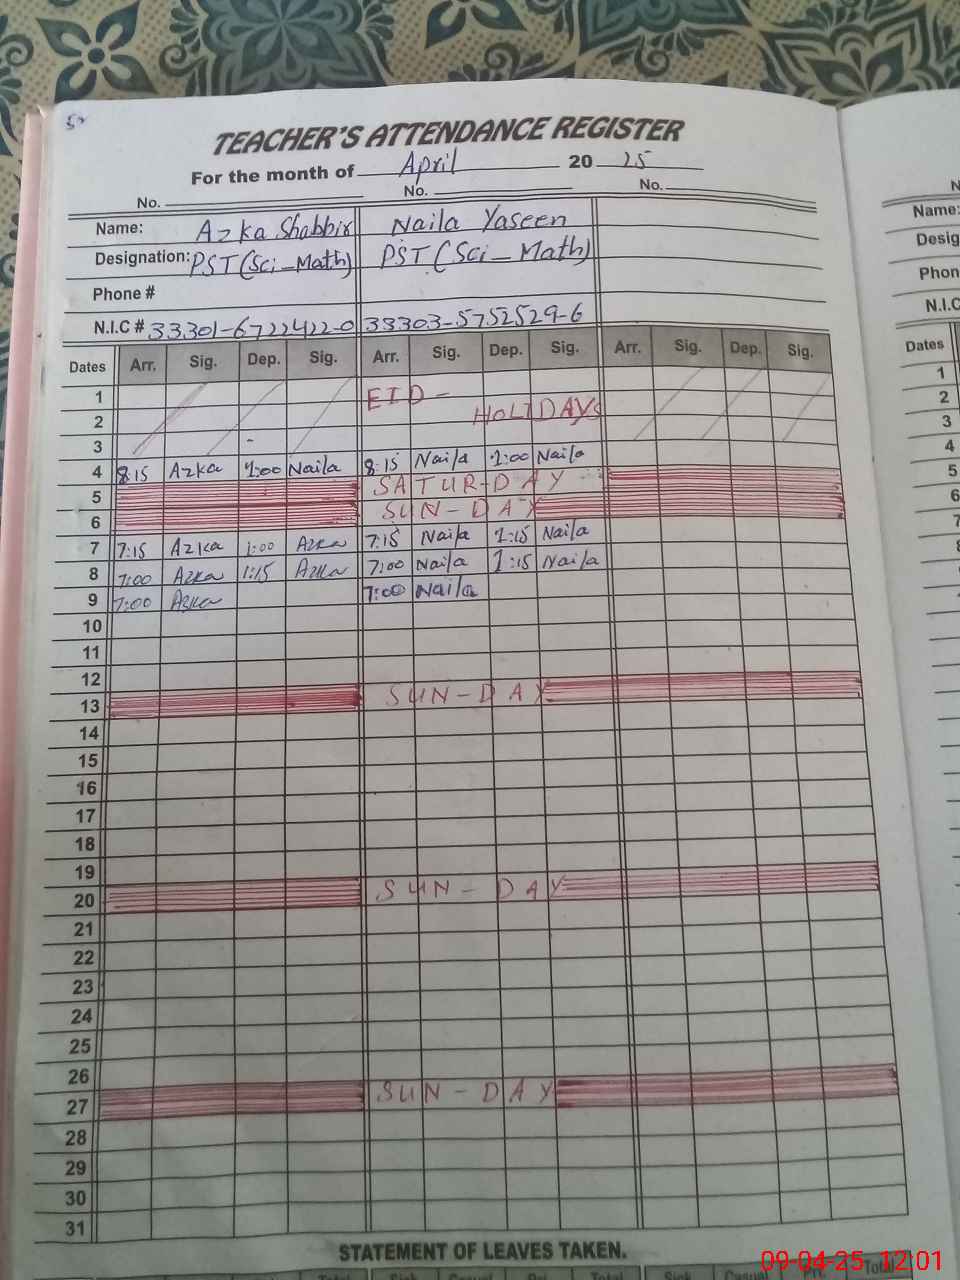 52
TEACHER'S ATTENDANCE REGISTER
For the month of April 20 25
No. No. No.
Name: Azka Shabbir Naila Yaseen
Designation: PST (Sci-Math) PST (Sci-Math)
Phone #
N.I.C # 33301-6722422-0 33303-5752529-6
Dates Arr. Sig. Dep. Sig. Arr. Sig. Dep. Sig. Arr. Sig. Dep. Sig.
1 EID-
2 HOLIDAYS
3
4 8:15 Azka 1:00 Naila 8:15 Naila 1:00 Naila
5 SATUR-DAY
6 SUN-DAY
7 7:15 Azka 1:00 Azka 7:15 Naila 1:15 Naila
8 7:00 Azka 1:15 Azka 7:00 Naila 1:15 Naila
9 7:00 Azka 7:00 Naila
10
11
12
13 SUN-DAY
14
15
16
17
18
19
20 SUN-DAY
21
22
23
24
25
26
27 SUN-DAY
28
29
30
31
STATEMENT OF LEAVES TAKEN.
Total Sick Casual Total Sick Casual Total
N
Name:
Desig
Phon
N.I.C
Dates
1
2
3
4
5
6
7
8
9
1
1
1
09-04-25 12:01